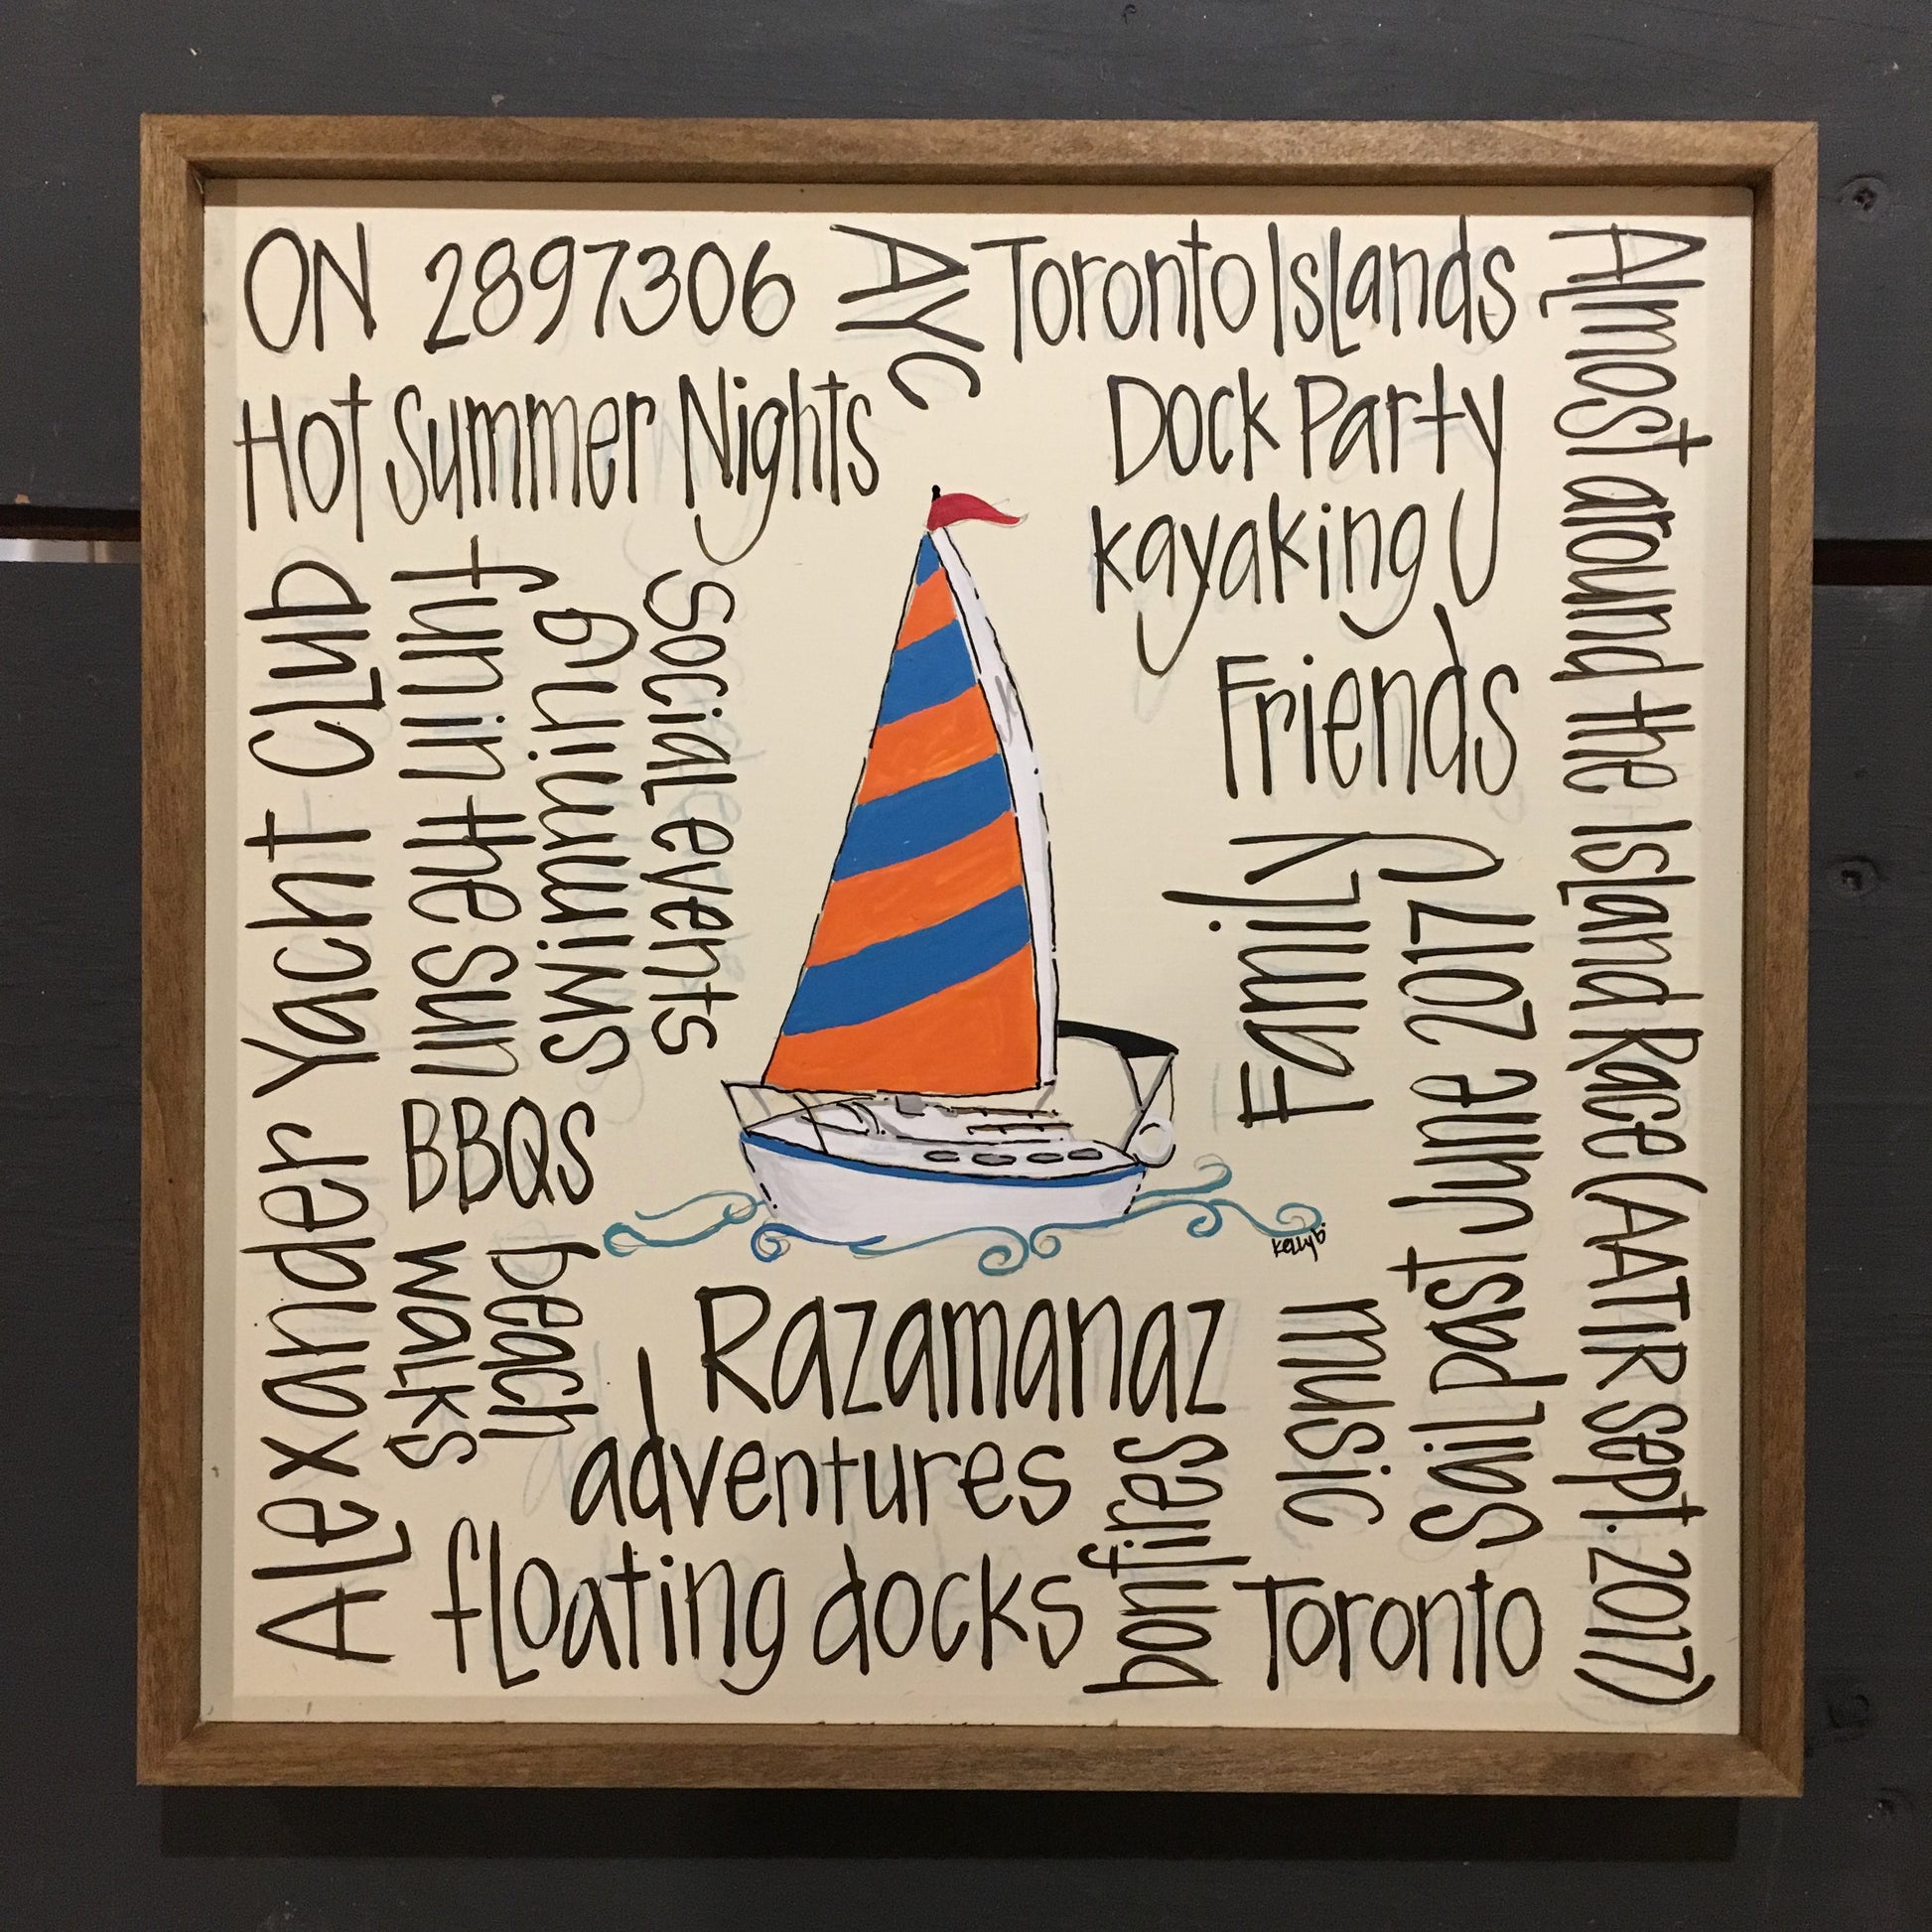 ON 2897306
AYC
Toronto Islands
Almost around the Island Race (AATIR Sept. 2017)
Hot Summer Nights
Dock Party
kayaking
Friends
Alexander Yacht Club
fun in the sun
swimming
social events
Family
Sail past June 2017
BBQS
beach
walks
kellyb
Razamanaz
adventures
music
bonfires
floating docks
Toronto